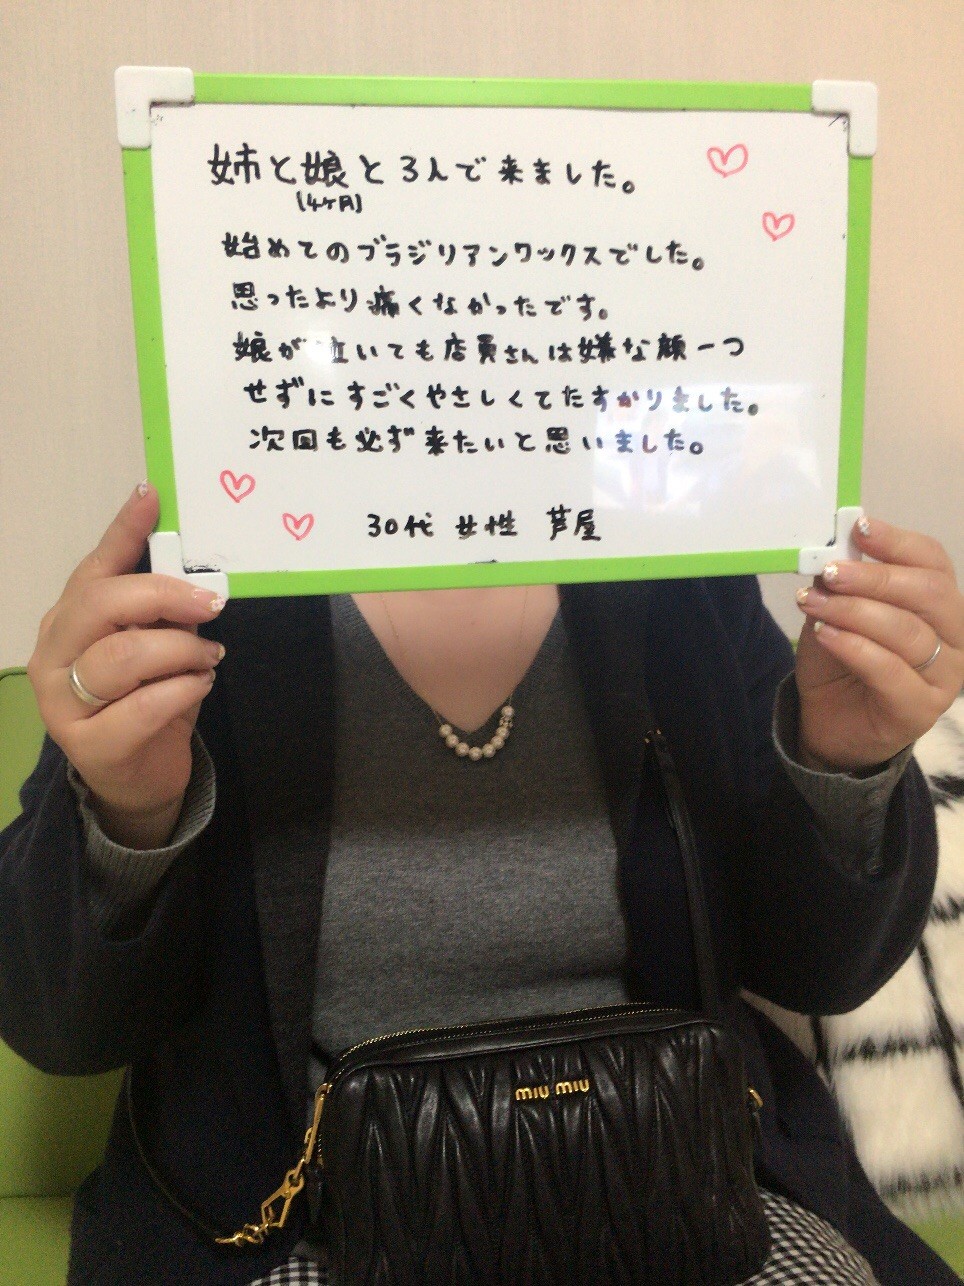 姉と娘と3人で来ました。
(4ヶ月)
始めてのブラジリアンワックスでした。
思ったより痛くなかったです。
娘が泣いても店員さんは嫌な顔一つ
せずにすごくやさしくてたすかりました。
次回も必ず来たいと思いました。
30代 女性 芦屋
miu miu